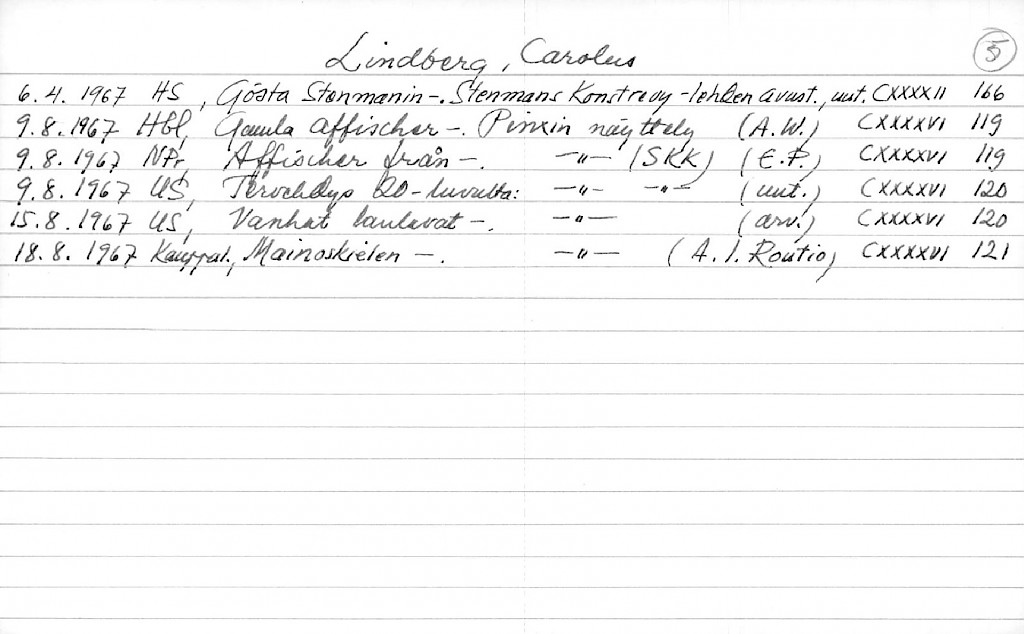 Lindberg, Carolus 5
6.4. 1967 HS, Gösta Stenmanin -. Stenmans Konstrevy -lehden avust., uut. CXXXXII 166
9.8.1967 Hbl, Gamla affischer -. Pinxin näyttely (A.W.) CXXXXVI 119
9.8.1967 NPr, Affischer från -. -"- (SKK) (E.P.) CXXXXVI 119
9.8.1967 US, Tervehdys 20-luvulta: -"- -"- (uut.) CXXXXVI 120
15.8.1967 US, Vanhat laulavat -. -"- (arv.) CXXXXVI 120
18.8.1967 Kauppal., Mainoskielen -. -"- (A.I. Routio) CXXXXVI 121